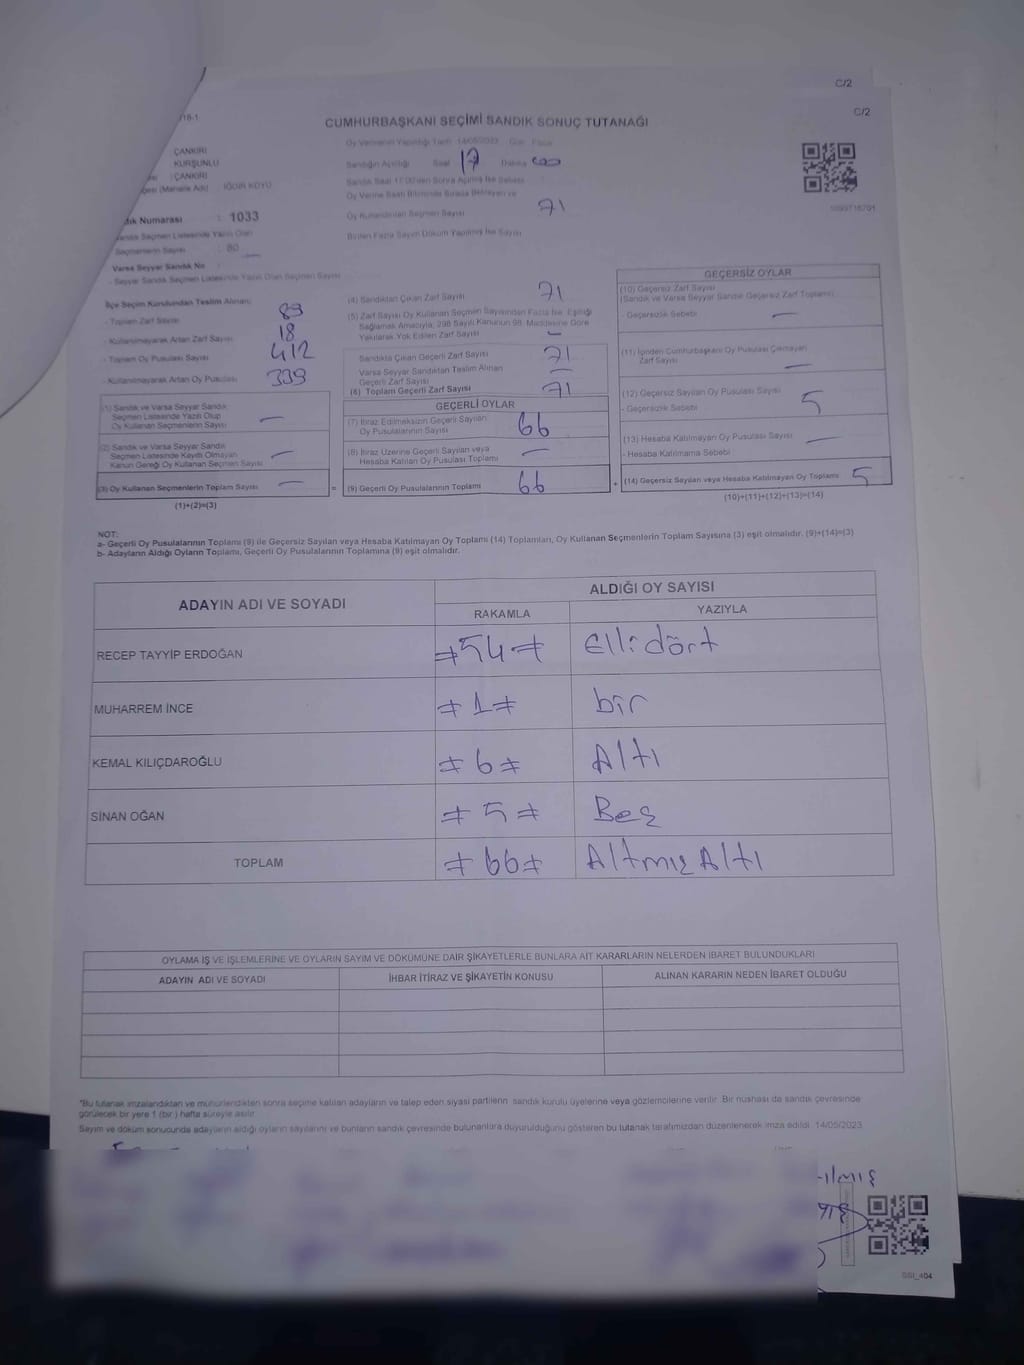 C/2
C/2
CUMHURBAŞKANI SEÇİMİ SANDIK SONUÇ TUTANAĞI
ÇANKIRI
KURŞUNLU
: ÇANKIRI
(Mahalle Adı) : IĞDIR KÖYÜ
Oy Vermenin Yapıldığı Tarih : 14/05/2023 Gün : Pazar
Sandığın Açıldığı Saat 17 Dakika 00
Sandık Saat 17:00'den Sonra Açılmış İse Sebebi
Oy Verme Saati Bitiminde Sırada Bekleyen ve
Oy Kullandırılan Seçmen Sayısı 71
Birden Fazla Sayım Döküm Yapılmış İse Sayısı
Numarası : 1033
Seçmen Listesinde Yazılı Olan
Seçmenlerin Sayısı : 80
Varsa Seyyar Sandık No :
- Seyyar Sandık Seçmen Listesinde Yazılı Olan Seçmen Sayısı
İlçe Seçim Kurulundan Teslim Alınan;
- Toplam Zarf Sayısı 89
- Kullanılmayarak Artan Zarf Sayısı 18
- Toplam Oy Pusulası Sayısı 412
- Kullanılmayarak Artan Oy Pusulası 339
(1) Sandık ve Varsa Seyyar Sandık
Seçmen Listesinde Yazılı Olup
Oy Kullanan Seçmenlerin Sayısı —
(2) Sandık ve Varsa Seyyar Sandık
Seçmen Listesinde Kayıtlı Olmayan
Kanun Gereği Oy Kullanan Seçmen Sayısı —
(3) Oy Kullanan Seçmenlerin Toplam Sayısı —
(1)+(2)=(3)
(4) Sandıktan Çıkan Zarf Sayısı 71
(5) Zarf Sayısı Oy Kullanan Seçmen Sayısından Fazla İse, Eşitliği
Sağlamak Amacıyla, 298 Sayılı Kanunun 98. Maddesine Göre
Yakılarak Yok Edilen Zarf Sayısı —
Sandıkta Çıkan Geçerli Zarf Sayısı 71
Varsa Seyyar Sandıktan Teslim Alınan
Geçerli Zarf Sayısı —
(6) Toplam Geçerli Zarf Sayısı 71
GEÇERLİ OYLAR
(7) İtiraz Edilmeksizin Geçerli Sayılan
Oy Pusulalarının Sayısı 66
(8) İtiraz Üzerine Geçerli Sayılan veya
Hesaba Katılan Oy Pusulası Toplamı —
(9) Geçerli Oy Pusulalarının Toplamı 66
GEÇERSİZ OYLAR
(10) Geçersiz Zarf Sayısı
(Sandık ve Varsa Seyyar Sandık Geçersiz Zarf Toplamı)
- Geçersizlik Sebebi —
(11) İçinden Cumhurbaşkanı Oy Pusulası Çıkmayan
Zarf Sayısı —
(12) Geçersiz Sayılan Oy Pusulası Sayısı 5
- Geçersizlik Sebebi
(13) Hesaba Katılmayan Oy Pusulası Sayısı —
- Hesaba Katılmama Sebebi
(14) Geçersiz Sayılan veya Hesaba Katılmayan Oy Toplamı 5
(10)+(11)+(12)+(13)=(14)
NOT:
a- Geçerli Oy Pusulalarının Toplamı (9) ile Geçersiz Sayılan veya Hesaba Katılmayan Oy Toplamı (14) Toplamları, Oy Kullanan Seçmenlerin Toplam Sayısına (3) eşit olmalıdır. (9)+(14)=(3)
b- Adayların Aldığı Oyların Toplamı, Geçerli Oy Pusulalarının Toplamına (9) eşit olmalıdır.
ADAYIN ADI VE SOYADI
ALDIĞI OY SAYISI
RAKAMLA YAZIYLA
RECEP TAYYİP ERDOĞAN ≠54≠ Ellidört
MUHARREM İNCE ≠1≠ bir
KEMAL KILIÇDAROĞLU ≠6≠ Altı
SİNAN OĞAN ≠5≠ Beş
TOPLAM ≠66≠ Altmış Altı
OYLAMA İŞ VE İŞLEMLERİNE VE OYLARIN SAYIM VE DÖKÜMÜNE DAİR ŞİKAYETLERLE BUNLARA AİT KARARLARIN NELERDEN İBARET BULUNDUKLARI
ADAYIN ADI VE SOYADI İHBAR İTİRAZ VE ŞİKAYETİN KONUSU ALINAN KARARIN NEDEN İBARET OLDUĞU
*Bu tutanak imzalandıktan ve mühürlendikten sonra seçime katılan adayların ve talep eden siyasi partilerin sandık kurulu üyelerine veya gözlemcilerine verilir. Bir nüshası da sandık çevresinde
görülecek bir yere 1 (bir) hafta süreyle asılır.
Sayım ve döküm sonucunda adayların aldığı oyların sayılarını ve bunların sandık çevresinde bulunanlara duyurulduğunu gösteren bu tutanak tarafımızdan düzenlenerek imza edildi. 14/05/2023
SSI_404